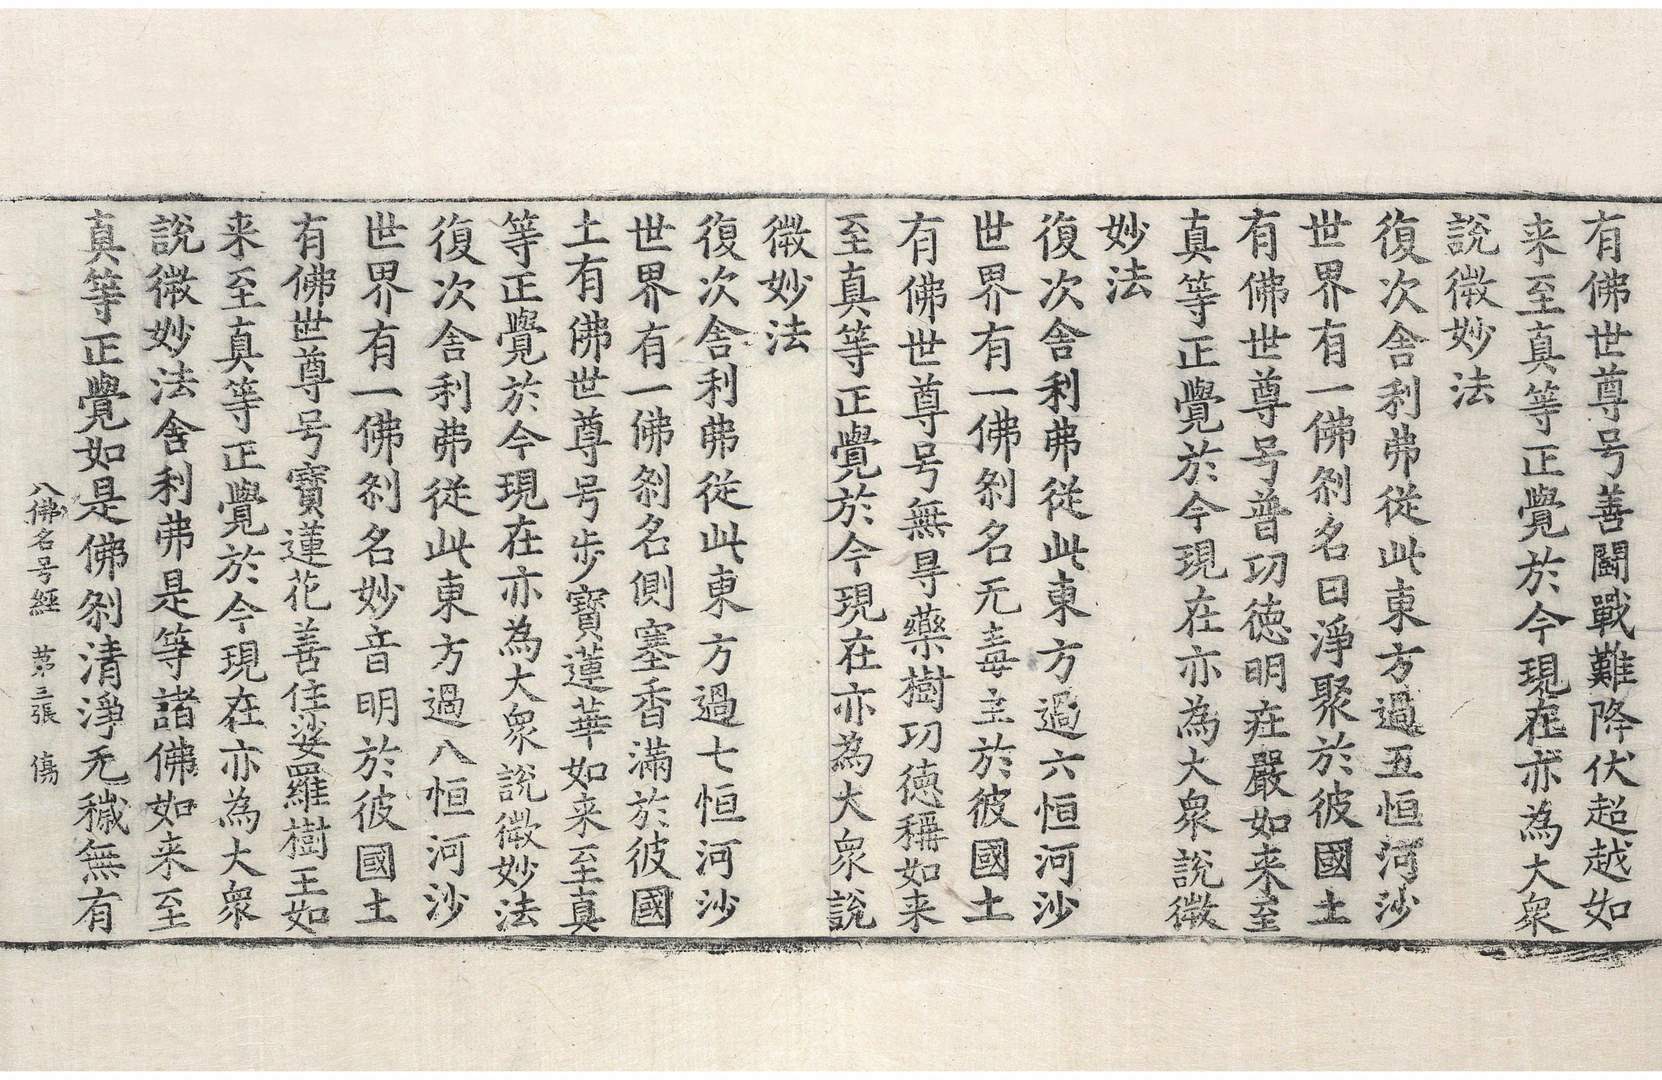 有佛世尊号善鬪戰難降伏超越如
来至真等正覺於今現在亦為大衆
說微妙法
復次舎利弗從此東方過五恒河沙
世界有一佛刹名曰淨聚於彼國土
有佛世尊号普功徳明莊嚴如来至
真等正覺於今現在亦為大衆說微
妙法
復次舎利弗從此東方過六恒河沙
世界有一佛刹名无毒主於彼國土
有佛世尊号無㝵藥樹功徳稱如来
至真等正覺於今現在亦為大衆說
微妙法
復次舎利弗從此東方過七恒河沙
世界有一佛刹名側塞香滿於彼國
土有佛世尊号歩寶蓮華如来至真
等正覺於今現在亦為大衆說微妙法
復次舎利弗從此東方過八恒河沙
世界有一佛刹名妙音明於彼國土
有佛世尊号寶蓮花善住娑羅樹王如
来至真等正覺於今現在亦為大衆
說微妙法舎利弗是等諸佛如来至
真等正覺如是佛刹清淨无穢無有
八佛名号經 第三張 傷